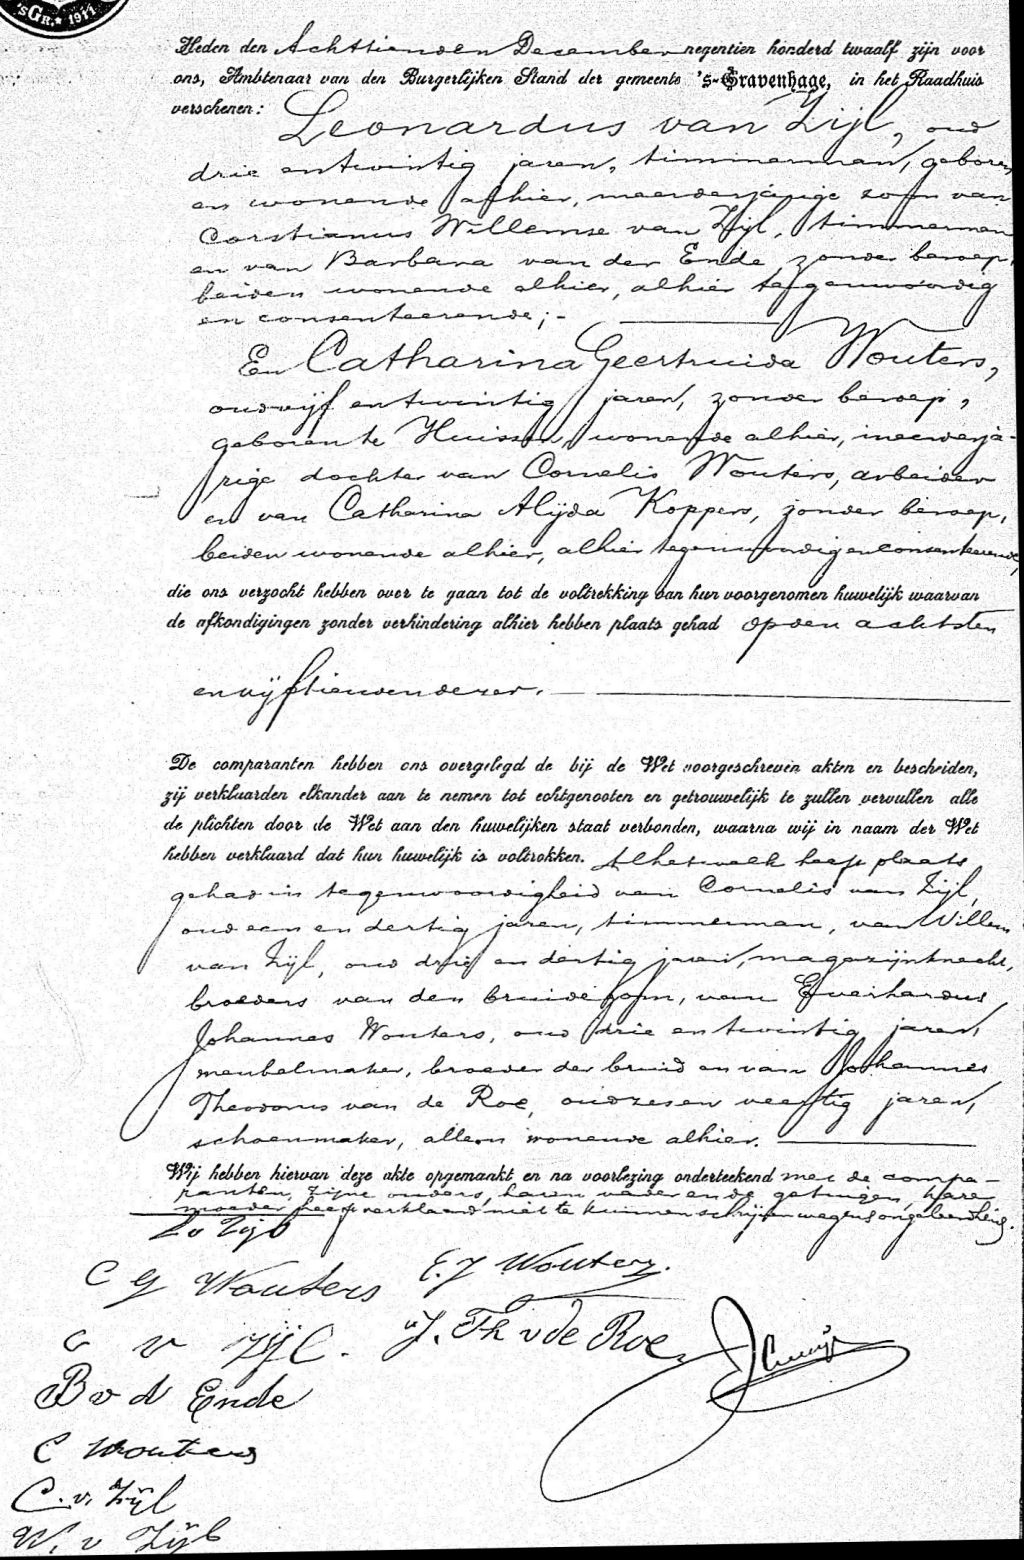 'sGR. * 1911
Heden den Achttienden December negentien honderd twaalf zijn voor
ons, Ambtenaar van den Burgerlijken Stand der gemeente 's-Gravenhage, in het Raadhuis
verschenen:
Leonardus van Zijl, oud
drie en twintig jaren, timmerman, geboren
en wonende alhier, meerderjarige zoon van
Corstianus Willemse van Zijl, timmerman
en van Barbara van der Ende, zonder beroep,
beiden wonende alhier, alhier tegenwoordig
en consenteerende;-
En Catharina Geertruida Wouters,
oud vijf en twintig jaren, zonder beroep,
geboren te Huissen, wonende alhier, meerderja-
rige dochter van Cornelis Wouters, arbeider
en van Catharina Alijda Koppers, zonder beroep,
beiden wonende alhier, alhier tegenwoordig en consenteerende,
die ons verzocht hebben over te gaan tot de voltrekking van hun voorgenomen huwelijk waarvan
de afkondigingen zonder verhindering alhier hebben plaats gehad op den achtsten
en vijftienden dezer.
De comparanten hebben ons overgelegd de bij de Wet voorgeschreven akten en bescheiden,
zij verklaarden elkander aan te nemen tot echtgenooten en getrouwelijk te zullen vervullen alle
de plichten door de Wet aan den huwelijken staat verbonden, waarna wij in naam der Wet
hebben verklaard dat hun huwelijk is voltrokken. Al hetwelk heeft plaats
gehad in tegenwoordigheid van Cornelis van Zijl,
oud een en dertig jaren, timmerman, van Willem
van Zijl, oud drie en dertig jaren, magazijnknecht,
broeders van den bruidegom, van Everhardus
Johannes Wouters, oud drie en twintig jaren,
meubelmaker, broeder der bruid en van Johannes
Theodorus van de Roe, oud zes en veertig jaren,
schoenmaker, allen wonende alhier.
Wij hebben hiervan deze akte opgemaakt en na voorlezing onderteekend met de compa-
ranten, zijne ouders, haren vader en de getuigen, hare
moeder heeft verklaard niet te kunnen schrijven wegens ongeleerdheid.
L v Zijl
C G Wouters
E. J Wouters.
C v Zijl.
J. Th v de Roe
B v d Ende
C Wouters
C. v. Zijl
W. v Zijl